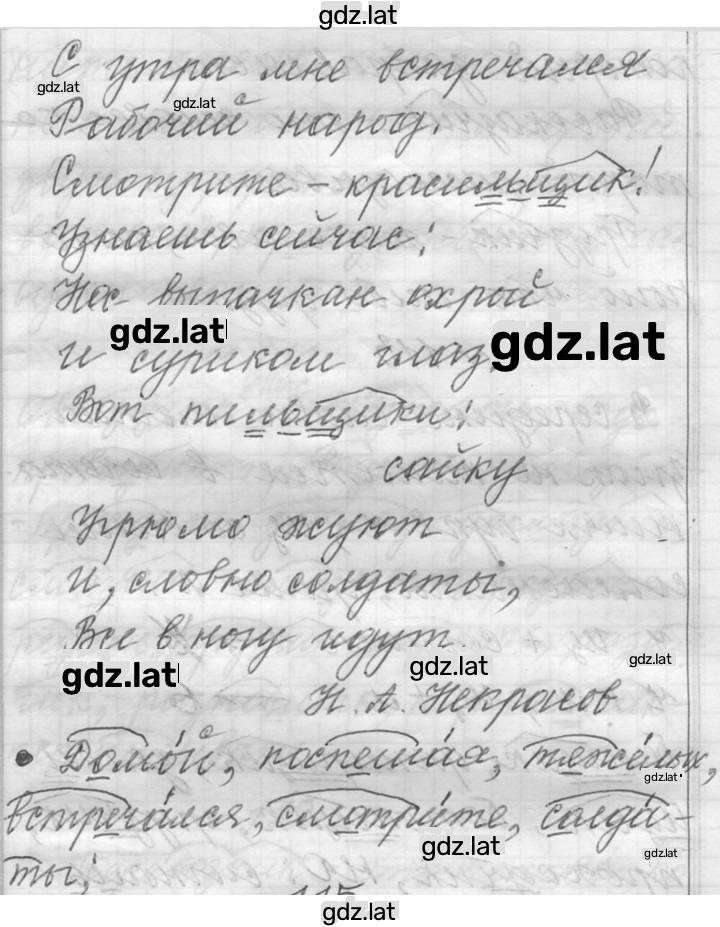 gdz.lat
С утра мне встречался
gdz.lat
gdz.lat
Рабочий народ.
Смотрите – красильщик!
Узнаешь сейчас:
Нос выпачкан охрой
gdz.lat
gdz.lat
и суриком глаз.
Вот пильщики:
сайку
Угрюмо жуют
И, словно солдаты,
Все в ногу идут.
gdz.lat
gdz.lat
gdz.lat
Н. А. Некрасов
• Домой, поспешая, тяжёлых,
gdz.lat
встречался, смотрите, солда-
gdz.lat
gdz.lat
ты;
115
gdz.lat